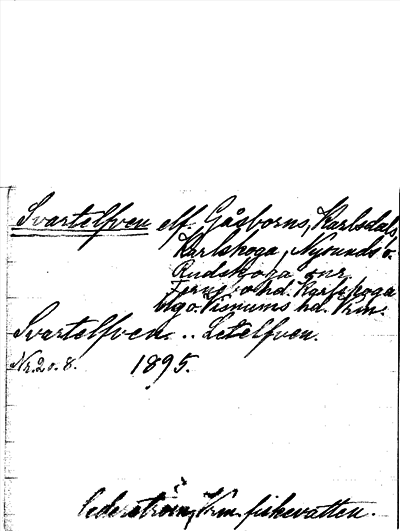 Svartelfven elf. Gåsborns, Karlsdals,
Karlskoga, Nysunds o.
Rudskoga snr
hd. Karlskoga
o. Visnums hd. Vrm.
Svartelfven .. Letelfven.
Nr. 2 o. 8. 1895.
Cederström, Vrm. fiskevatten.